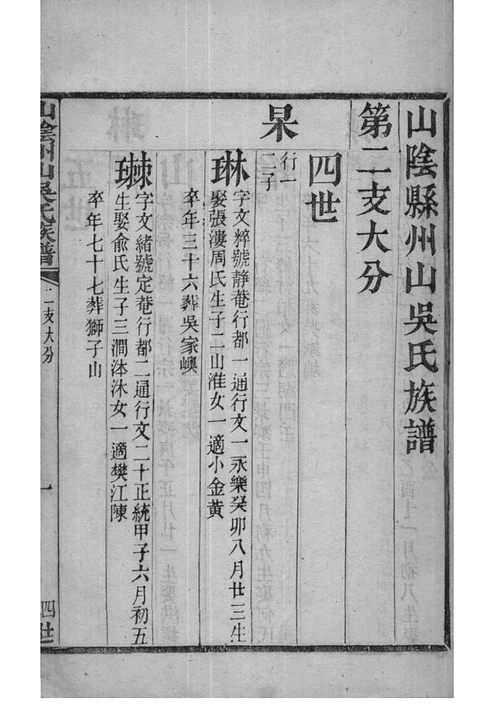 山陰縣州山吳氏族譜
第二支大分
四世
杲
行一
二子
琳
字文粹號靜菴行都一通行文一永樂癸卯八月廿三生
娶張漊周氏生子二山淮女一適小金黃
卒年三十六葬吳家嶴
字文緒號定菴行都二通行文二十正統甲子六月初五
生娶俞氏生子三澗泍沐女一適樊江陳
卒年七十七葬獅子山
山陰州山吳氏族譜
二支大分
一
四世